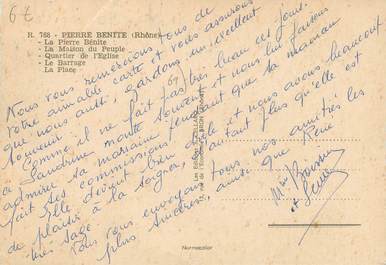 6€
R. 768 - PIERRE BENITE (Rhône)
- La Pierre Bénite
- La Maison du Peuple
- Quartier de l'Eglise
- Le Barrage
- La Place
Nous vous remercions tous de
votre aimable carte et vous assurons
que nous aussi, gardons un excellent
souvenir.
Comme il ne fait pas très beau ces jours-
ci Sandrine monte souvent et nous lui faisons
admirer sa marraine pendant que ta maman
fait ses commissions.
Elle devient bien et nous avons beaucoup
de plaisir à la soigner, d'autant plus qu'elle est
très sage.
Nous vous envoyons tous nos amitiés les
plus sincères, ainsi que René
Mme
et
Normacolor